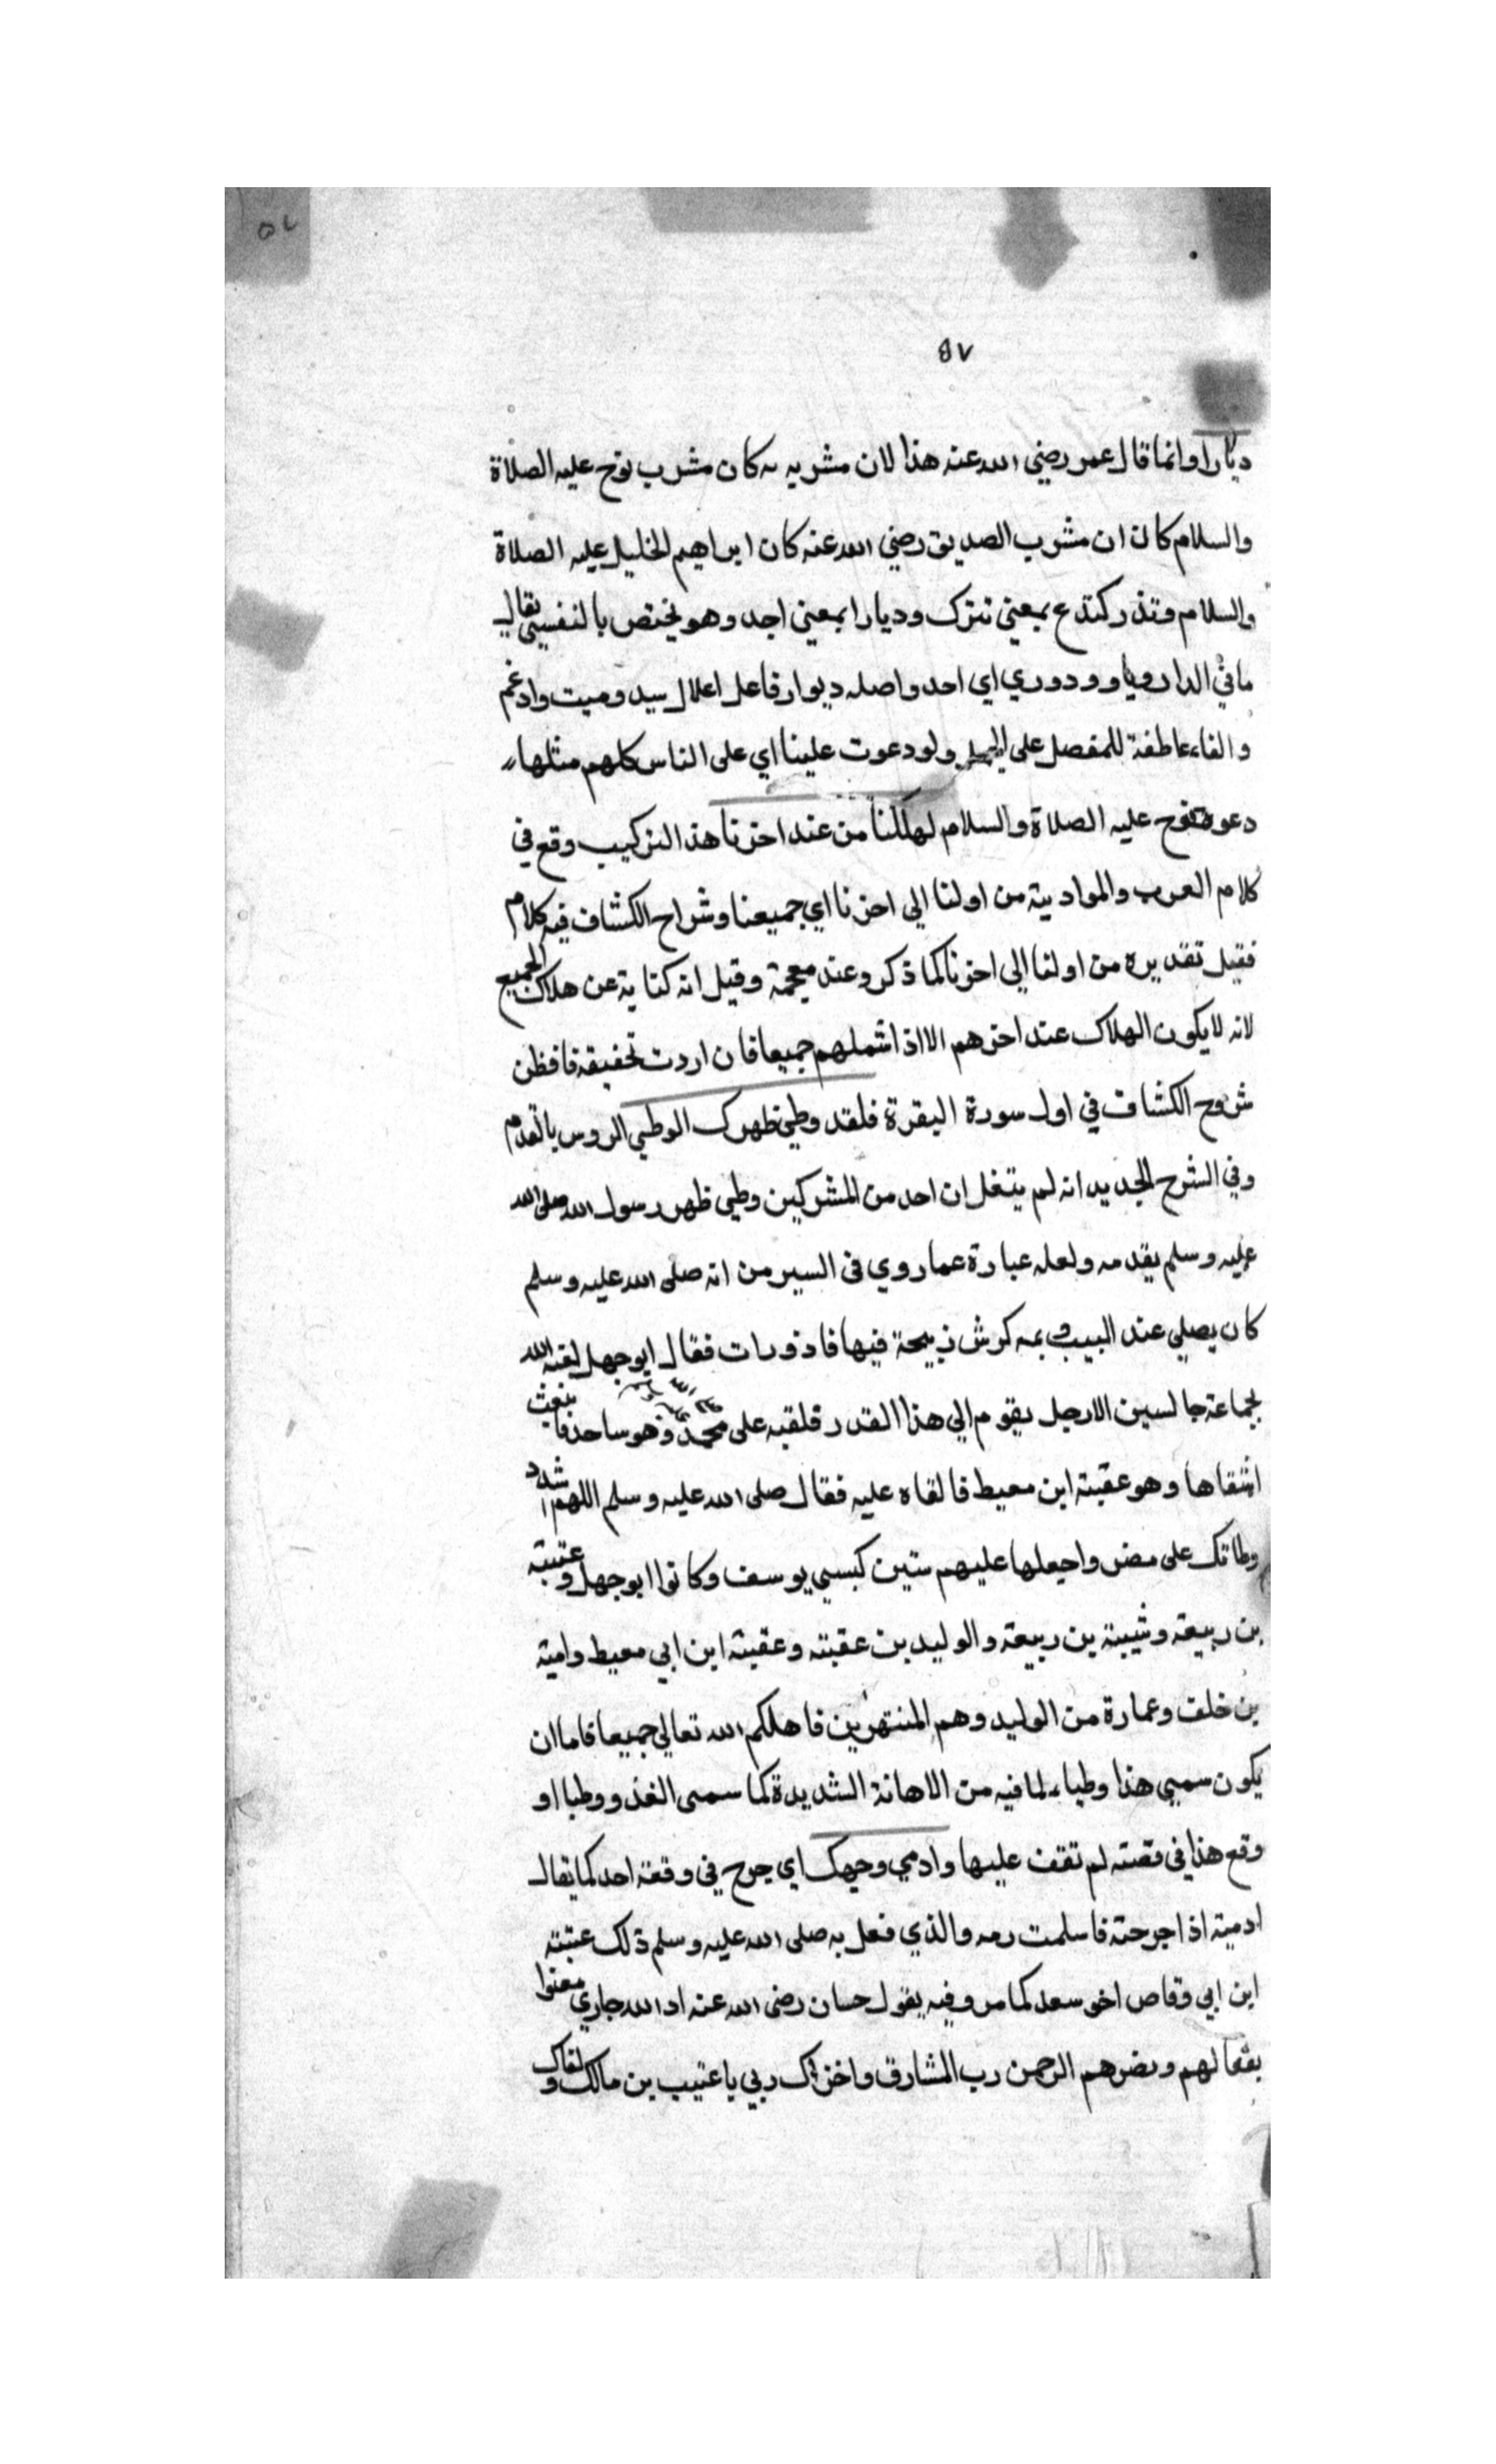 ٥٧
٥٧
ديارا وانما قال عمر رضي الله عنه هذا لان مشربه كان مشرب نوح عليه الصلاة
والسلام كان ان مشرب الصديق رضي الله عنه كان ابراهيم الخليل عليه الصلاة
والسلام وتذر كتدع بمعني تترك وديارا بمعني احد وهو يختص بالنفي يقال
ما في الدار ودوري اي احد واصله ديوار فاعل اعلال سيد وميت وادغم
والفاء عاطفة للمفصل على ولو دعوت علينا اي على الناس كلهم مثلها
دعوة نوح عليه الصلاة والسلام لهلكنا من عند اخرنا هذا التركيب وقع في
كلام العرب والموادية من اولنا الي اخرنا اي جميعنا وشراح الكشاف فيه كلام
فقيل تقديره من اولنا الي اخرنا كما ذكر وعند معجمة وقيل انه كناية عن هلاك الجميع
لانه لا يكون الهلاك عند اخرهم الا اذا شملهم جميعا فان اردت تحقيقه فافظن
شروح الكشاف في اول سورة البقرة فلقد وطي ظهرك الوطي الروس بالقدم
وفي الشرح الجديد انه لم يتغل ان احد من المشركين وطي ظهر رسول الله صلى الله
عليه وسلم بقدمه ولعله عبارة عما روي في السير من انه صلى الله عليه وسلم
كان يصلي عند البيت كرش ذبيحة فيها قاذورات فقال ابو جهل لعنه الله
لجماعة جالسين الا رجل يقوم الي هذا القدر فلقيه على محمد وهو ساجد فا نبغث
اشقاها وهو عقبة ابن معيط فالقاه عليه فقال صلى الله عليه وسلم اللهم اشدد
وطاتك على مضر واجعلها عليهم سنين كسبي يوسف وكانوا ابو جهل وعتبة
بن ربيعة وشيبة بن ربيعة والوليد بن عقبة وعقبة ابن ابي معيط وامية
بن خلف وعمارة من الوليد وهم المنتهزين فاهلكم الله تعالي جميعا فاما ان
يكون سمي هذا وطياء لما فيه من الاهانة الشديدة كما سمى الغذو وطيا او
وقع هذا في قصة لم تقف عليها وادمي وجهك اي جرح في وقعة احد كما يقال
ادميه اذا جرحته فاسلمت رمه والذي فعل به صلى الله عليه وسلم ذلك عتبة
ابن ابي وقاص اخو سعد كما مر وفيه يقول حسان رضي الله عنه اذ الله جازي معنوا
بفعالهم وضرهم الرحمن رب المشارق واخزاك ربي يا عتيب بن مالك ولقاك